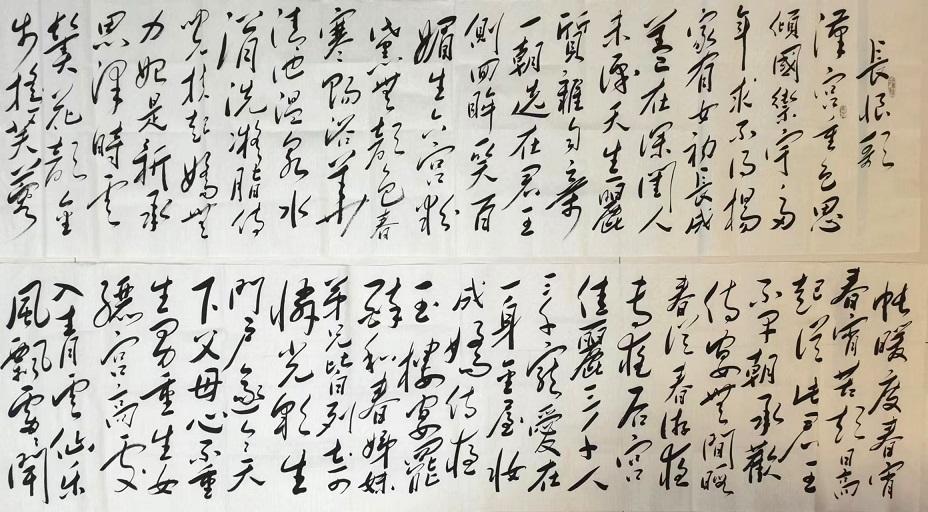 長恨歌
漢宮重色思
傾國御宇多
年求不得楊
家有女初長成
養在深閨人
未識天生麗
質難自棄
一朝選在君王
側回眸笑百
媚生六宮粉
黛無顏色春
寒賜浴華
清池溫泉水
滑洗凝脂侍
兒扶起嬌無
力始是新承
恩澤時雲
鬢花顏金
步搖芙蓉
帳暖度春宵
春宵苦短日高
起從此君王
不早朝承歡
侍宴無閒暇
春從春遊夜
專夜后宮
佳麗三千人
三千寵愛在
一身金屋妝
成嬌侍夜
玉樓宴罷
醉和春姊妹
弟兄皆列土可
憐光彩生
門戶遂令天
下父母心不重
生男重生女
驪宮高處
入青雲仙樂
風飄處處聞